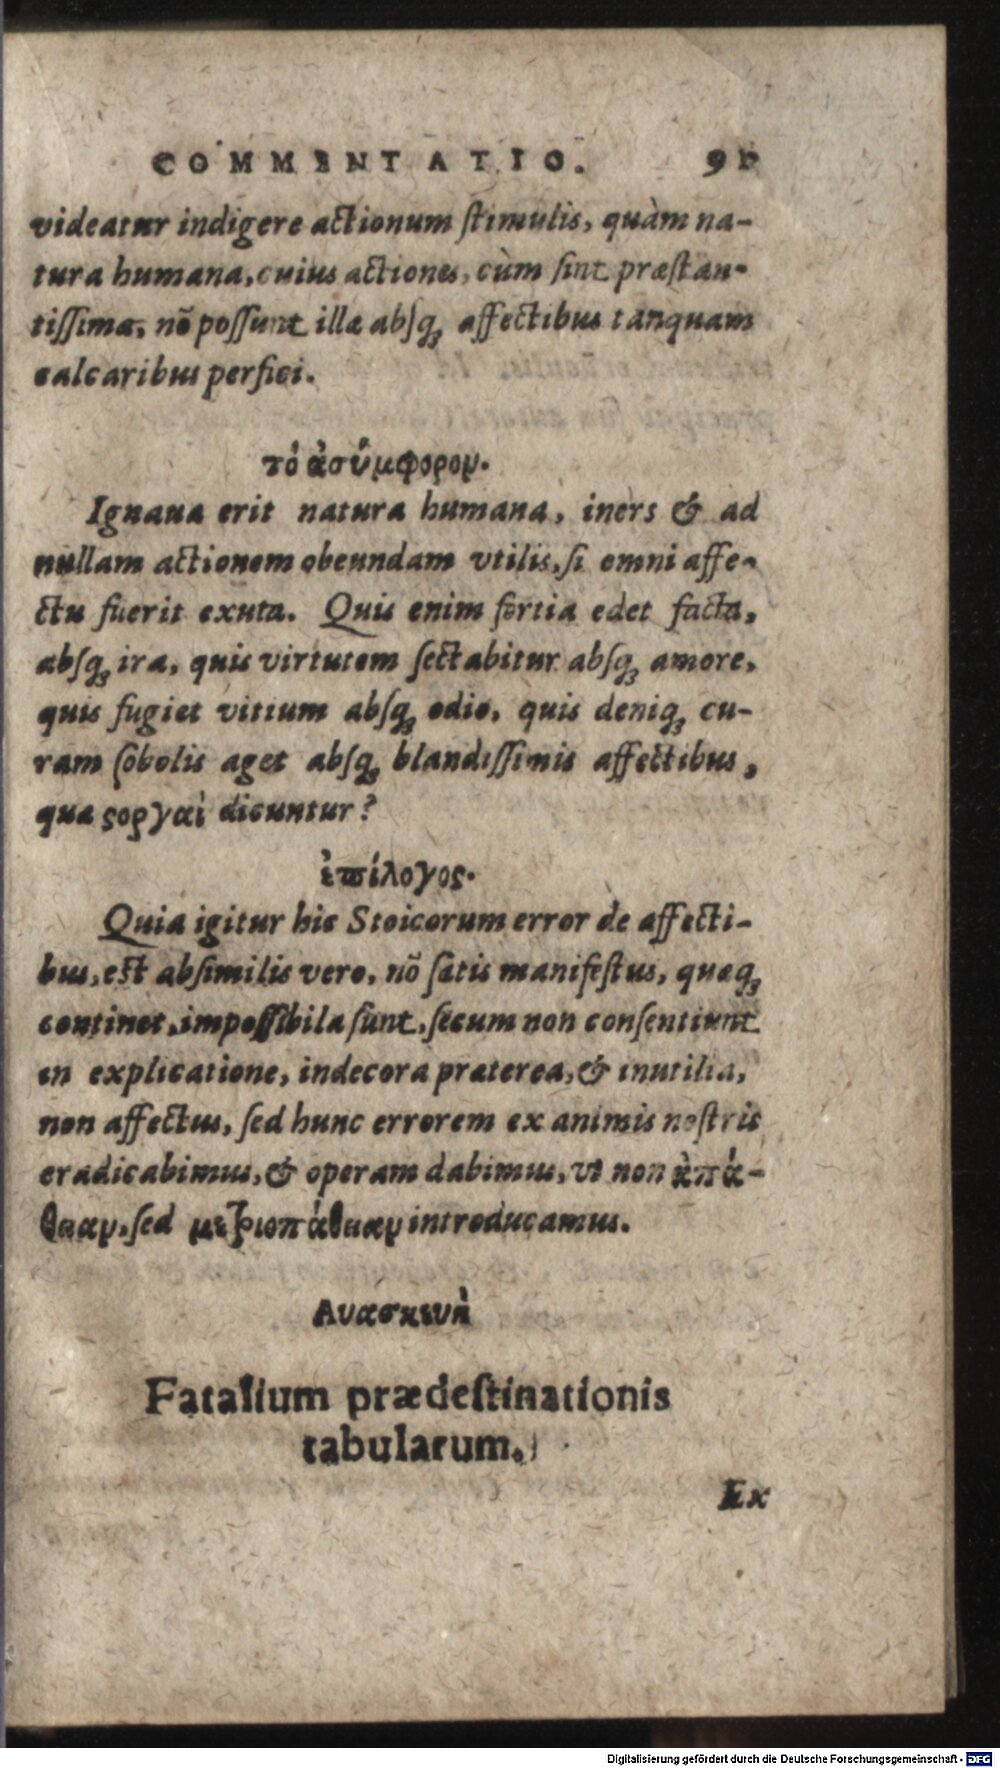 COMMENTATIO. 91
videatur indigere actionum ſtimulis, quàm na-
tura humana, cuius actiones, cùm ſint præſtan-
tiſſimæ, nõ poſſunt illæ abſq; affectibus tanquam
calcaribus perfici.
τὸ ἀσύμφορον.
Ignaua erit natura humana, iners & ad
nullam actionem obeundam vtilis, ſi omni affe-
ctu fuerit exuta. Quis enim fortia edet facta,
abſq; ira, quis virtutem ſectabitur abſq; amore,
quis fugiet vitium abſq; odio, quis deniq; cu-
ram ſobolis aget abſq; blandiſſimis affectibus,
quæ ϛοργαὶ dicuntur?
ἐπίλογος.
Quia igitur hic Stoicorum error de affecti-
bus, eſt abſimilis vero, nõ ſatis manifeſtus, quæq;
continet, impoſſibila ſunt, ſecum non conſentiunt
in explicatione, indecora præterea, & inutilia,
non affectus, ſed hunc errorem ex animis noſtris
eradicabimus, & operam dabimus, vt non ἀπά-
θειαν, ſed μετριοπάθειαν introducamus.
Ανασκευὴ
Fatalium prædeſtinationis
tabularum.
Ex
Digitalisierung gefördert durch die Deutsche Forschungsgemeinschaft - DFG